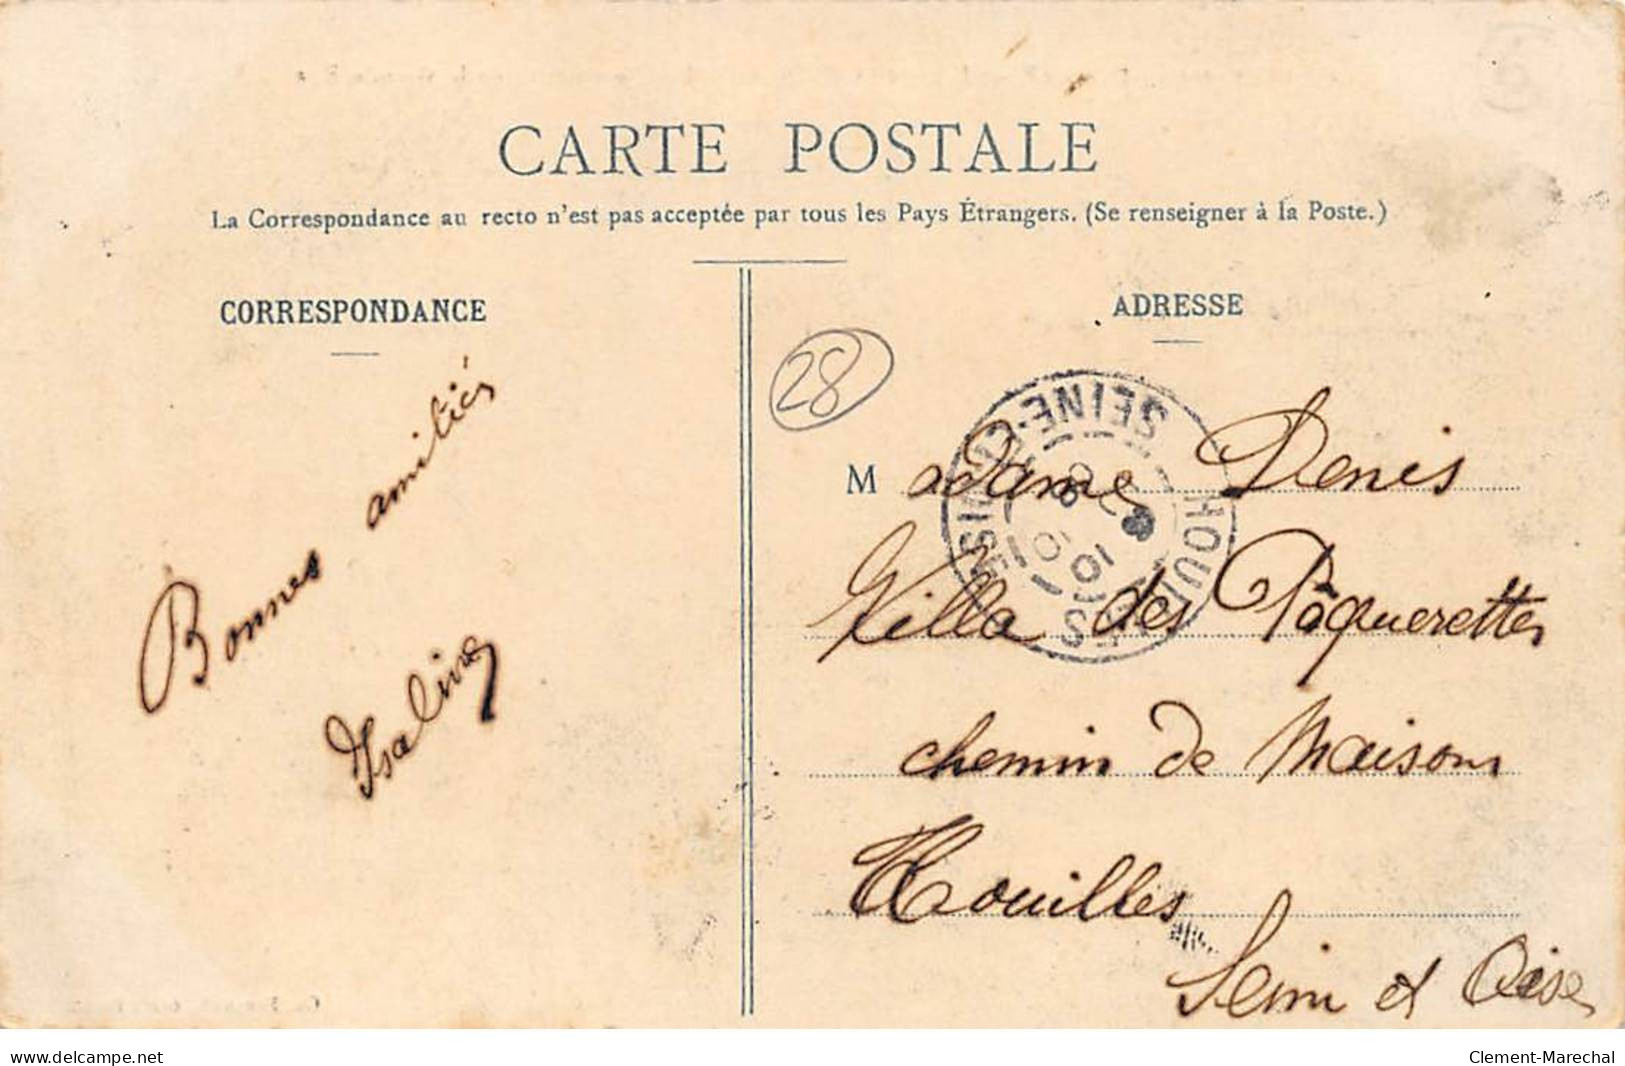 CARTE POSTALE
La Correspondance au recto n'est pas acceptée par tous les Pays Étrangers. (Se renseigner à la Poste.)
CORRESPONDANCE
Bonnes amitiés
Isaline
ADRESSE
28
SEINE-ET-OISE
HOUILLES
Madame Denis
Villa des Pâquerettes
chemin de Maisons
Houilles
Seine et Oise
delcampe.net
Clement-Marechal